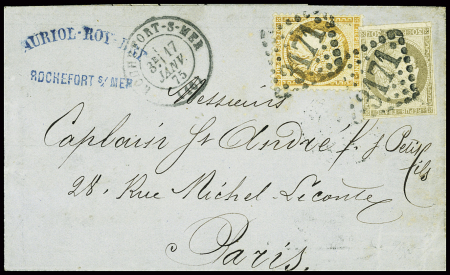 AURIOL-ROY-
ROCHEFORT S/ MER
ROCHEFORT-S-MER
3E/ 17
JANV.
75
(16)
3171
3171
Messieurs
Captain St André f. & Petits
fils
28, Rue Michel Léconte
Paris.